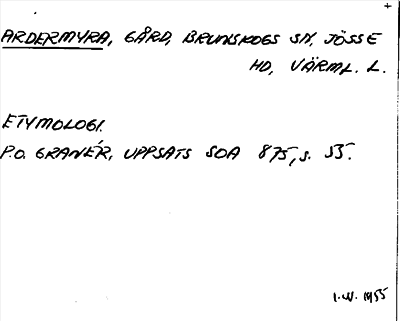 +
ARDERMYRA, GÅRD, BRUNSKOGS SN, JÖSSE
HD, VÄRML. L.
ETYMOLOGI.
P.O. GRANÉR, UPPSATS SOA 875, s. 55.
1955